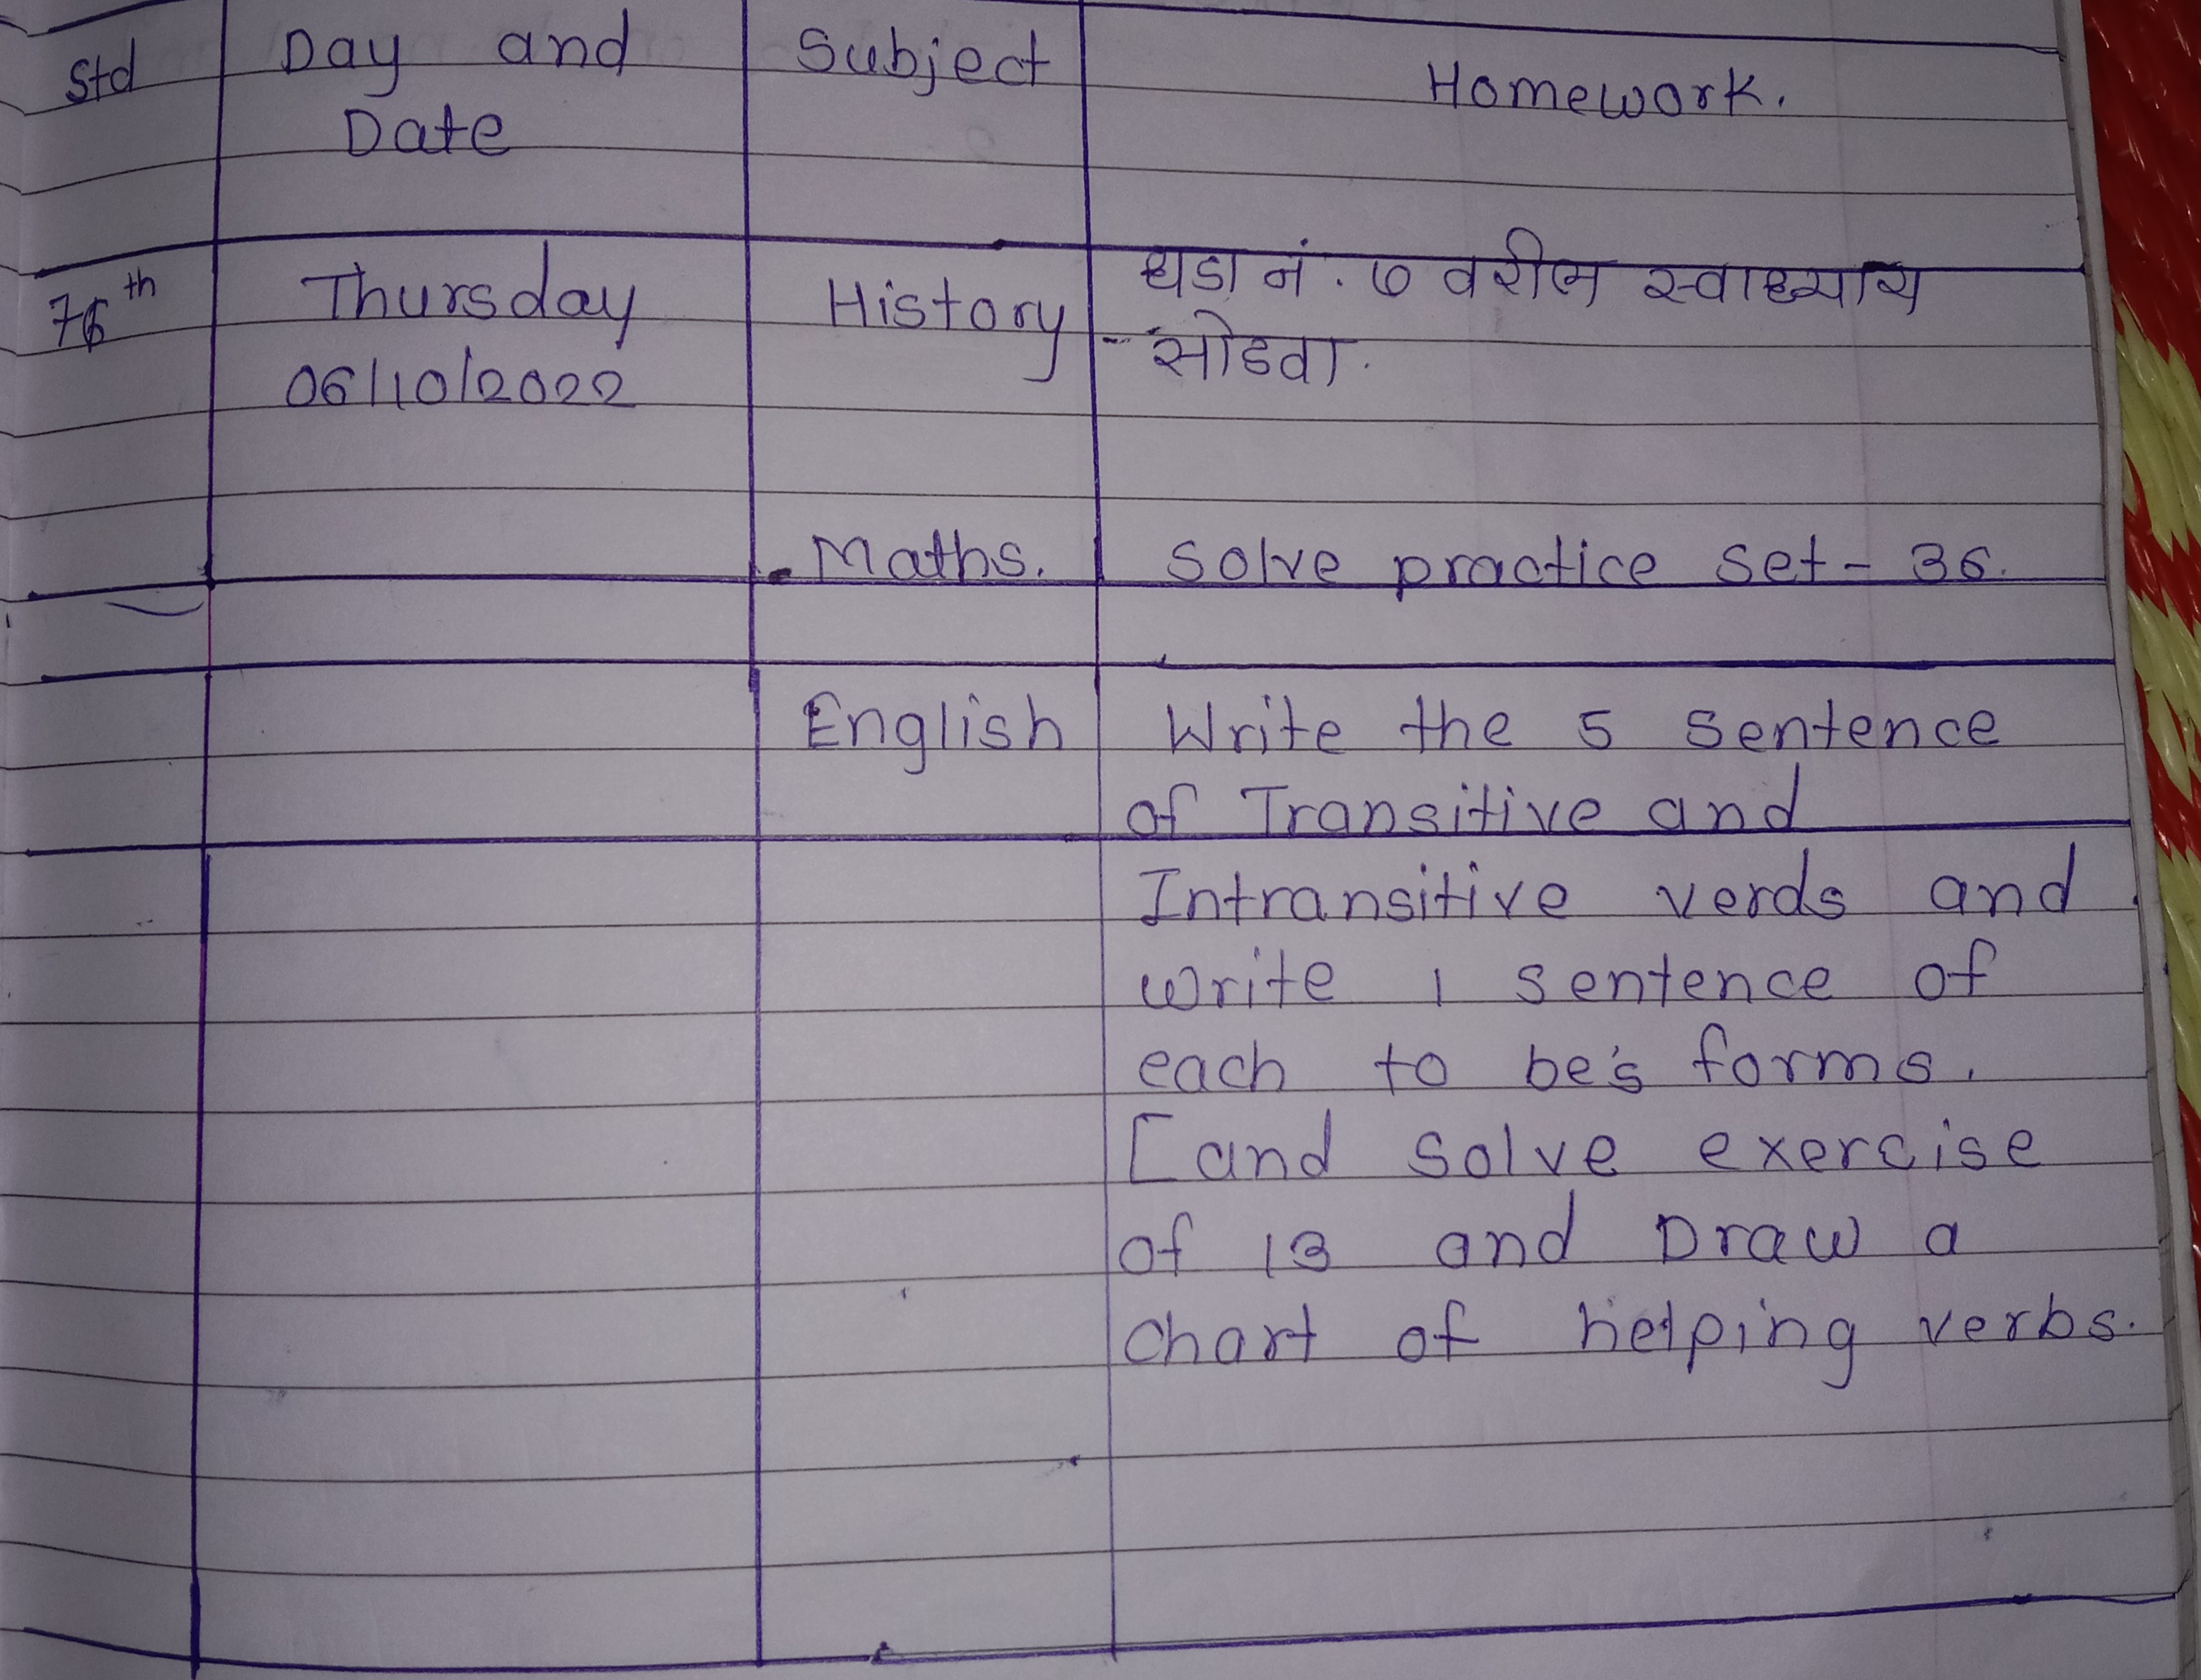 Std Day and Subject Homework.
Date
Thursday History धडा नं. ७ वरील स्वाध्याय
06/10/2022 - सोडवा.
Maths. solve practice set - 36.
English Write the 5 sentence
of Transitive and
Intransitive verds and
write 1 sentence of
each to be's forms.
[and solve exercise
of 13 and Draw a
chart of helping verbs.